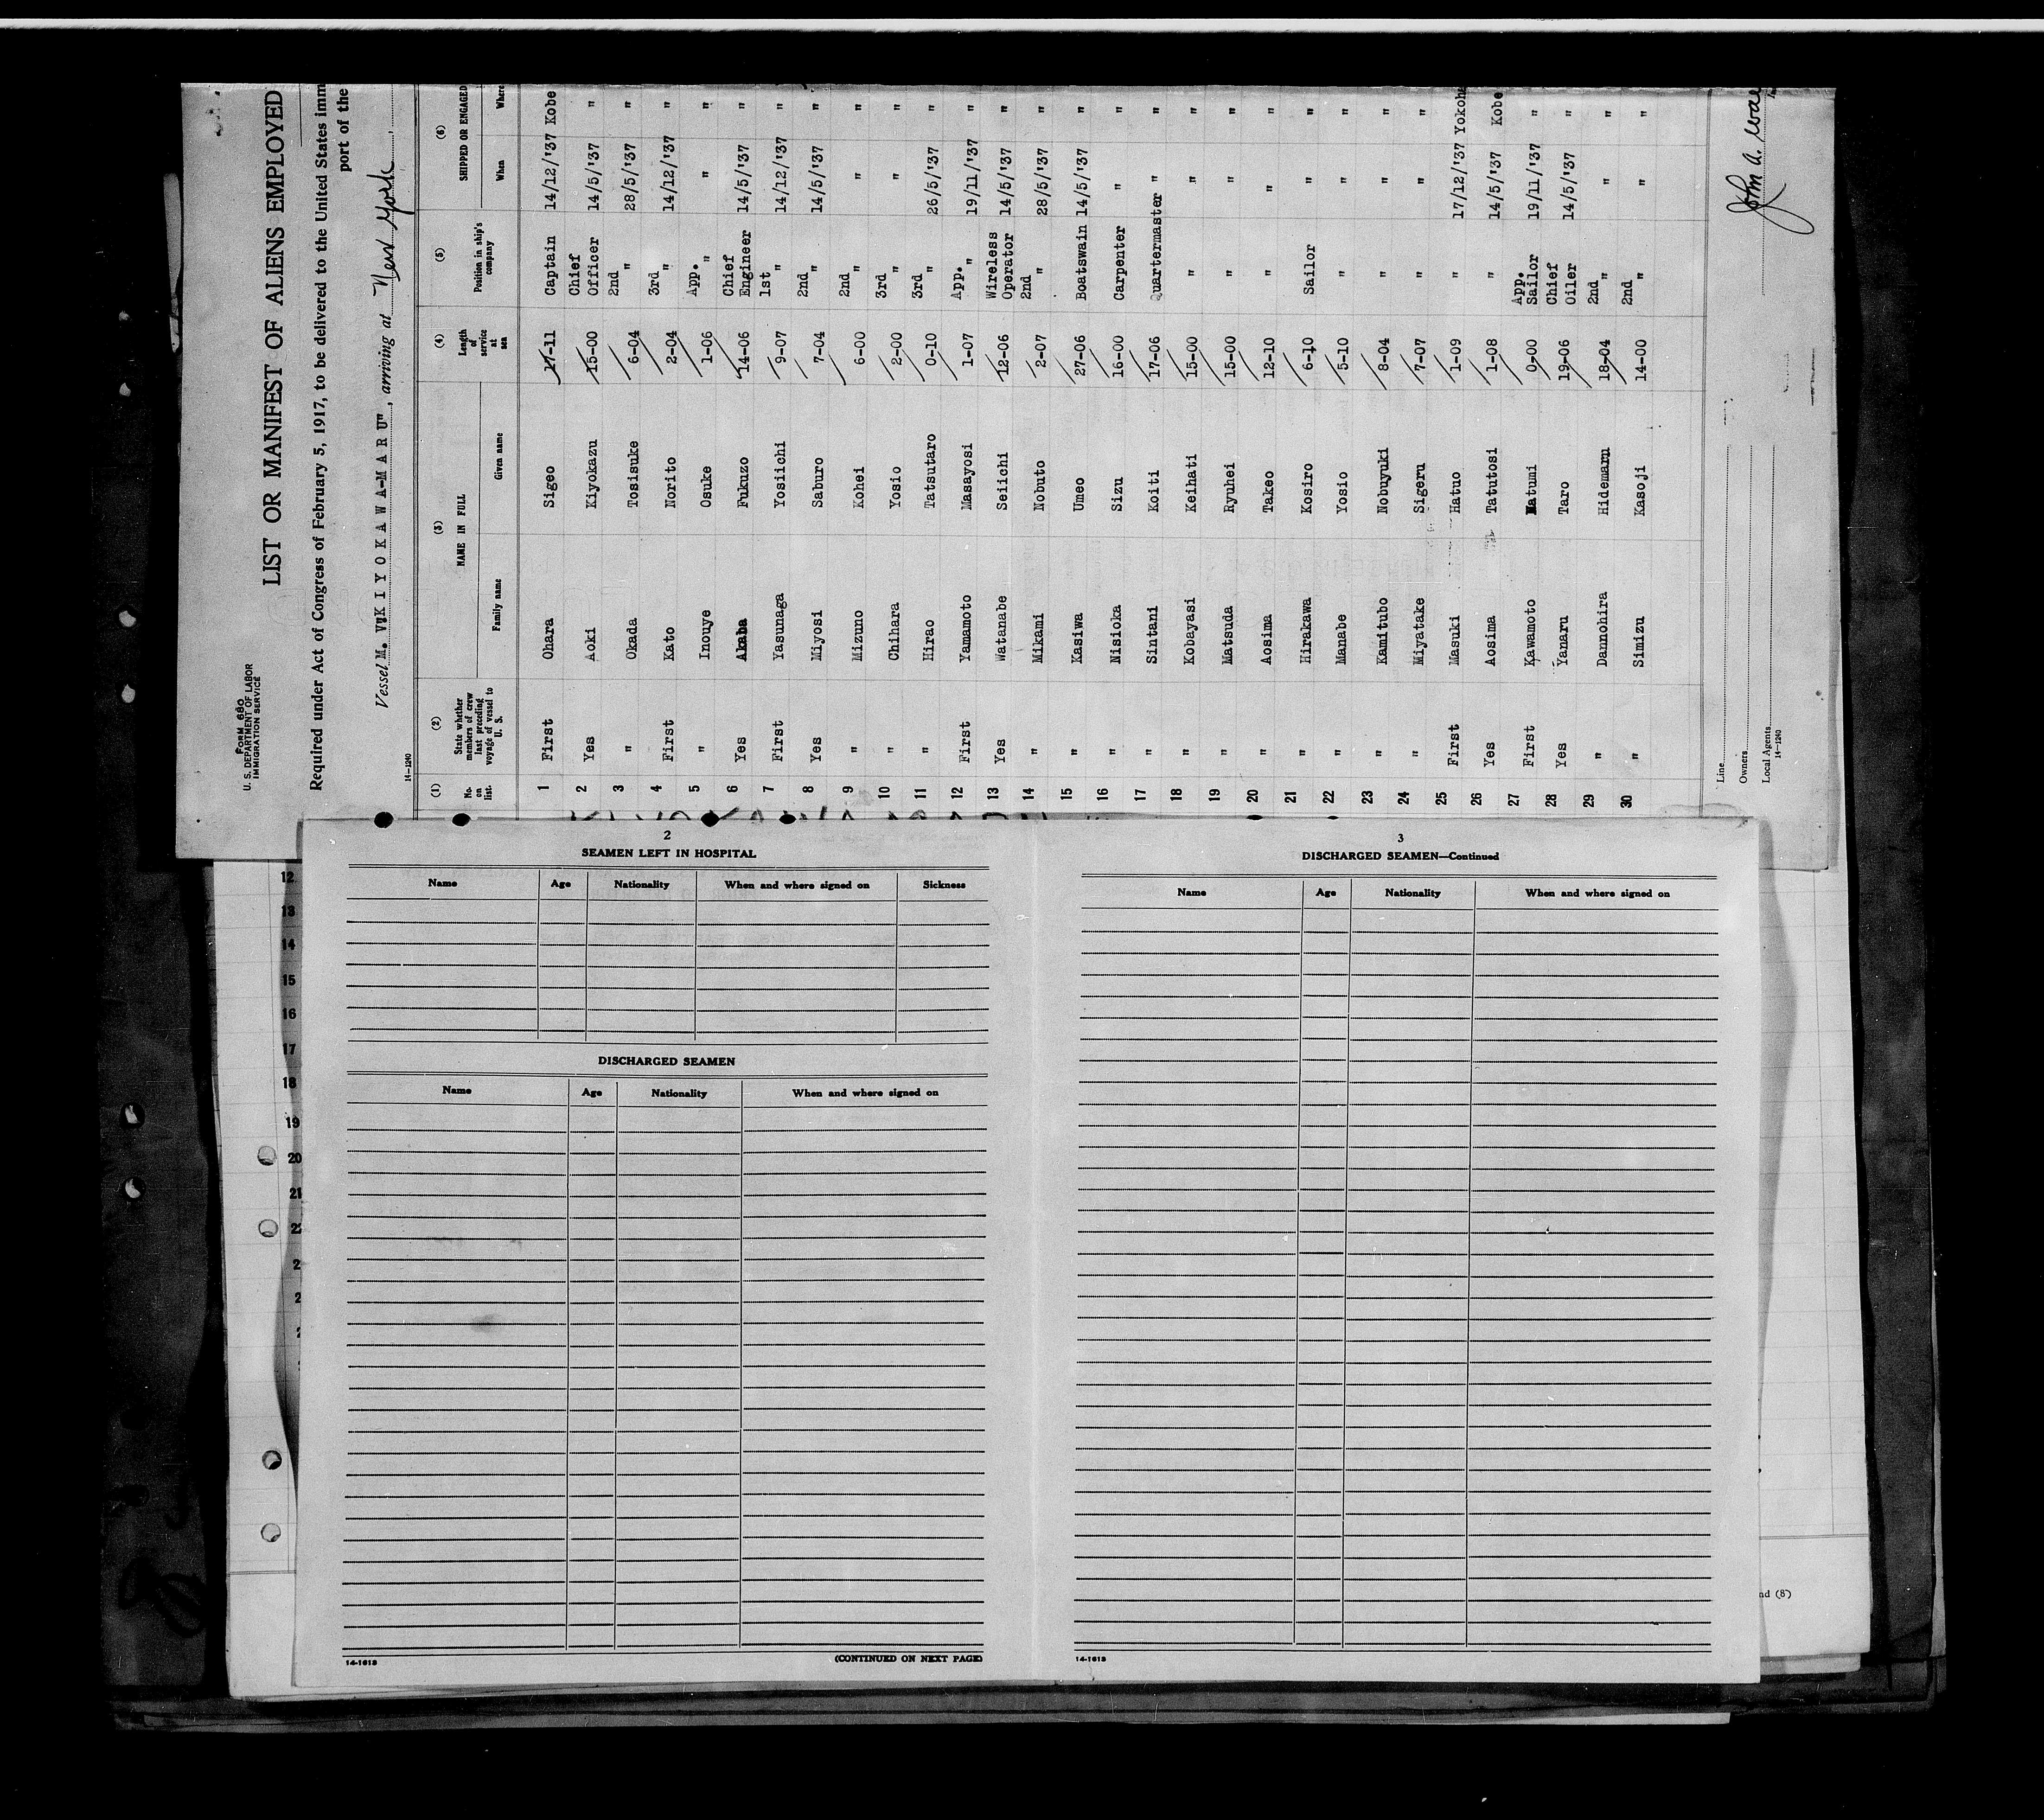 FORM 680
U. S. DEPARTMENT OF LABOR
IMMIGRATION SERVICE
LIST OR MANIFEST OF ALIENS EMPLOYED
Required under Act of Congress of February 5, 1917, to be delivered to the United States imm
port of the
Vessel M. V. "K I Y O K A W A-M A R U", arriving at New York,
14-1240
(1) (2) (3) (4) (5) (6)
No. on list. State whether members of crew last preceding voyage of vessel to U. S. NAME IN FULL Length of service at sea Position in ship's company SHIPPED OR ENGAGED
Family name Given name When Where
1 First Ohara Sigeo 17-11 Captain 14/12/'37 Kobe
2 Yes Aoki Kiyokazu 15-00 Chief Officer 14/5/'37 "
3 " Okada Tosisuke 6-04 2nd " 28/5/'37 "
4 First Kato Norito 2-04 3rd " 14/12/'37 "
5 " Inouye Osuke 1-06 App. " " "
6 Yes Akaba Fukuzo 14-06 Chief Engineer 14/5/'37 "
7 First Yasunaga Yosiichi 9-07 1st " 14/12/'37 "
8 Yes Miyosi Saburo 7-04 2nd " 14/5/'37 "
9 " Mizuno Kohei 6-00 2nd " " "
10 " Chihara Yosio 2-00 3rd " " "
11 " Hirao Tatsutaro 0-10 3rd " 26/5/'37 "
12 First Yamamoto Masayosi 1-07 App. " 19/11/'37 "
13 Yes Watanabe Seiichi 12-06 Wireless Operator 14/5/'37 "
14 " Mikami Nobuto 2-07 2nd " 28/5/'37 "
15 " Kasiwa Umeo 27-06 Boatswain 14/5/'37 "
16 " Nisioka Sizu 16-00 Carpenter " "
17 " Sintani Koiti 17-06 Quartermaster " "
18 " Kobayasi Keihati 15-00 " " "
19 " Matsuda Ryuhei 15-00 " " "
20 " Aosima Takeo 12-10 " " "
21 " Hirakawa Kosiro 6-10 Sailor " "
22 " Manabe Yosio 5-10 " " "
23 " Kamitubo Nobuyuki 8-04 " " "
24 " Miyatake Sigeru 7-07 " " "
25 First Masuki Hatuo 1-09 " 17/12/'37 Yokoha
26 Yes Aosima Tatutosi 1-08 " 14/5/'37 Kobe
27 First Kawamoto Matumi 0-00 App. Sailor 19/11/'37 "
28 Yes Yanaru Taro 19-06 Chief Oiler 14/5/'37 "
29 " Dannohira Hidemaru 18-04 2nd " " "
30 " Simizu Kasoji 14-00 2nd " " "
Line
Owners
Local Agents
14-1240
John A.
12
13
14
15
16
17
18
19
20
21
2
SEAMEN LEFT IN HOSPITAL
Name Age Nationality When and where signed on Sickness
DISCHARGED SEAMEN
Name Age Nationality When and where signed on
14-1613 (CONTINUED ON NEXT PAGE)
3
DISCHARGED SEAMEN—Continued
Name Age Nationality When and where signed on
14-1613
nd (8)